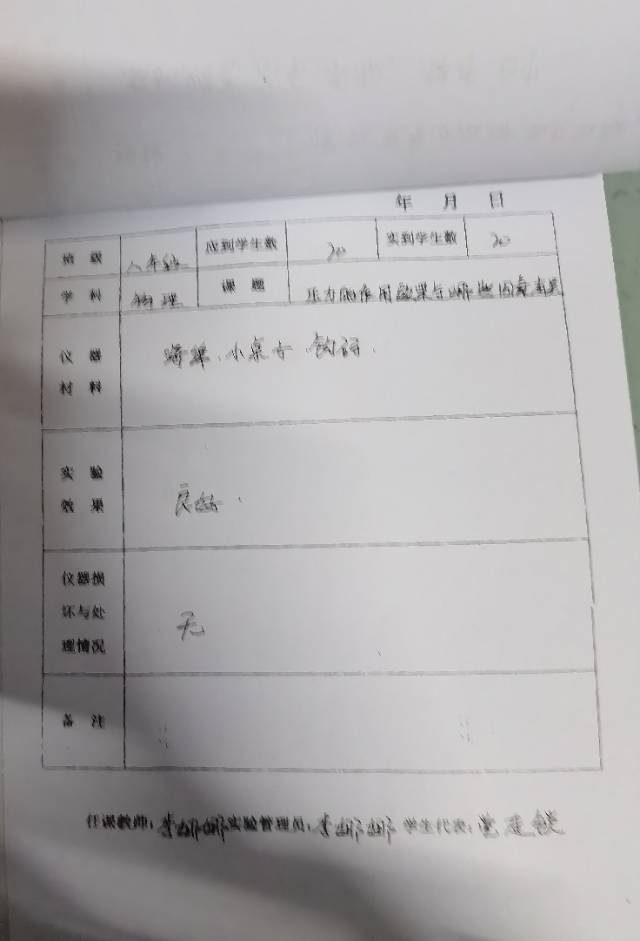 年 月 日
班 级 八年级 应到学生数 20 实到学生数 20
学 科 物理 课 题 压力的作用效果与哪些因素有关
仪 器
材 料
海绵、小桌子、钩码.
实 验
效 果
良好.
仪器损
坏与处
理情况
无
备 注
任课教师: 李娜娜 实验管理员: 李娜娜 学生代表: